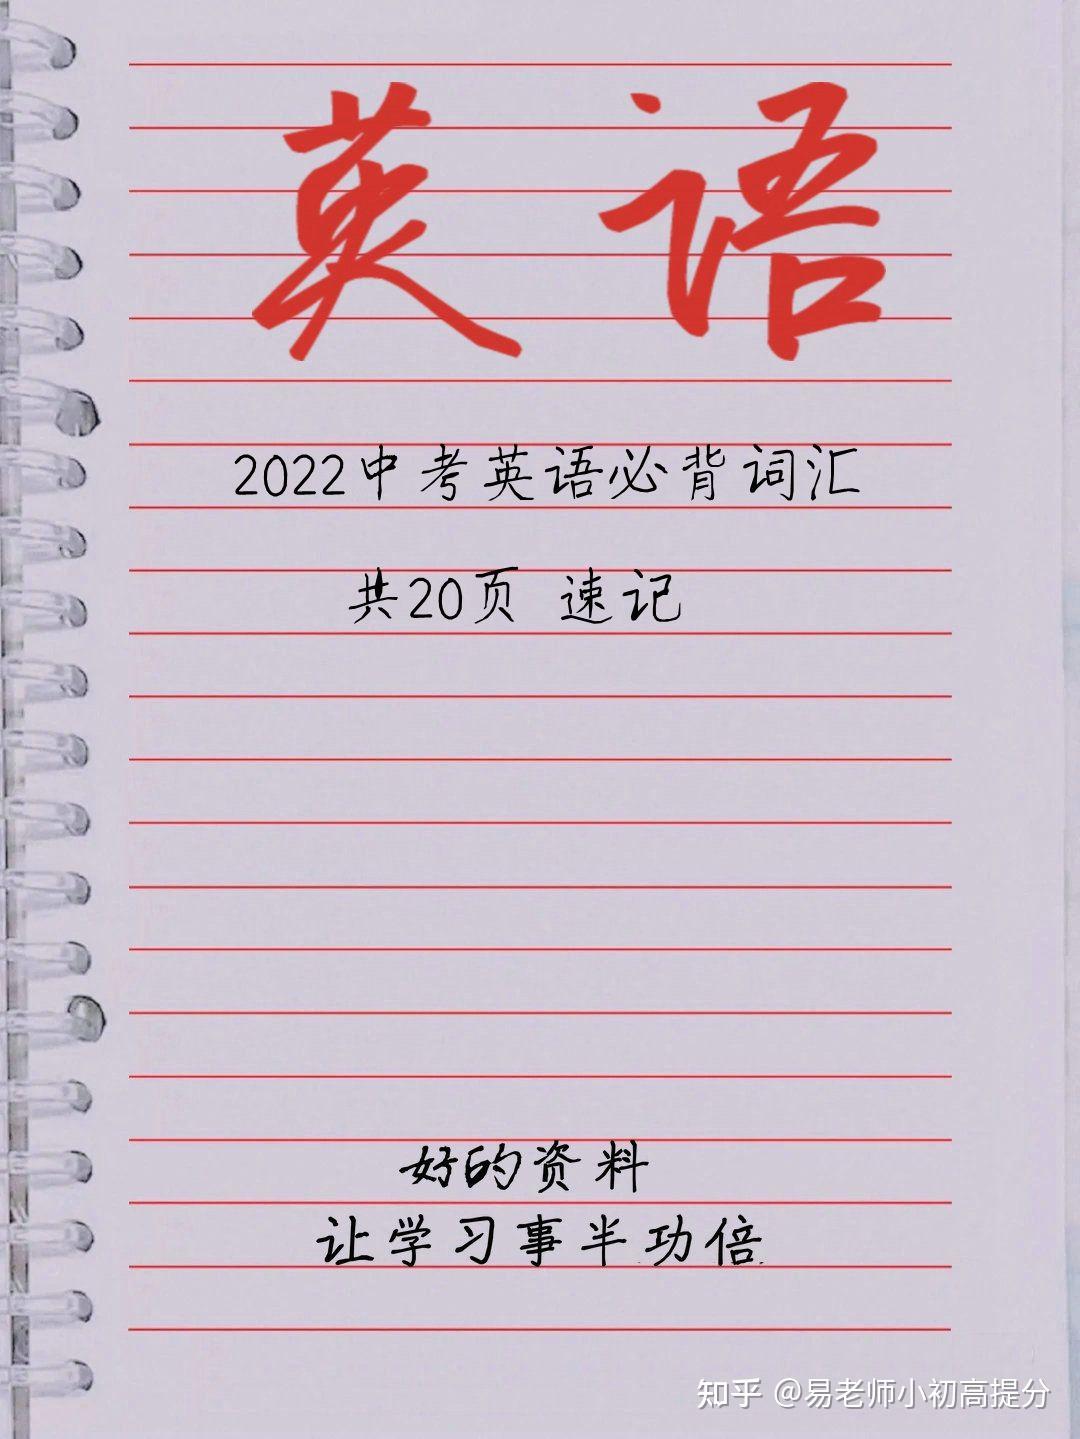 英语
2022中考英语必背词汇
共20页 速记
好的资料
让学习事半功倍
知乎 @易老师小初高提分